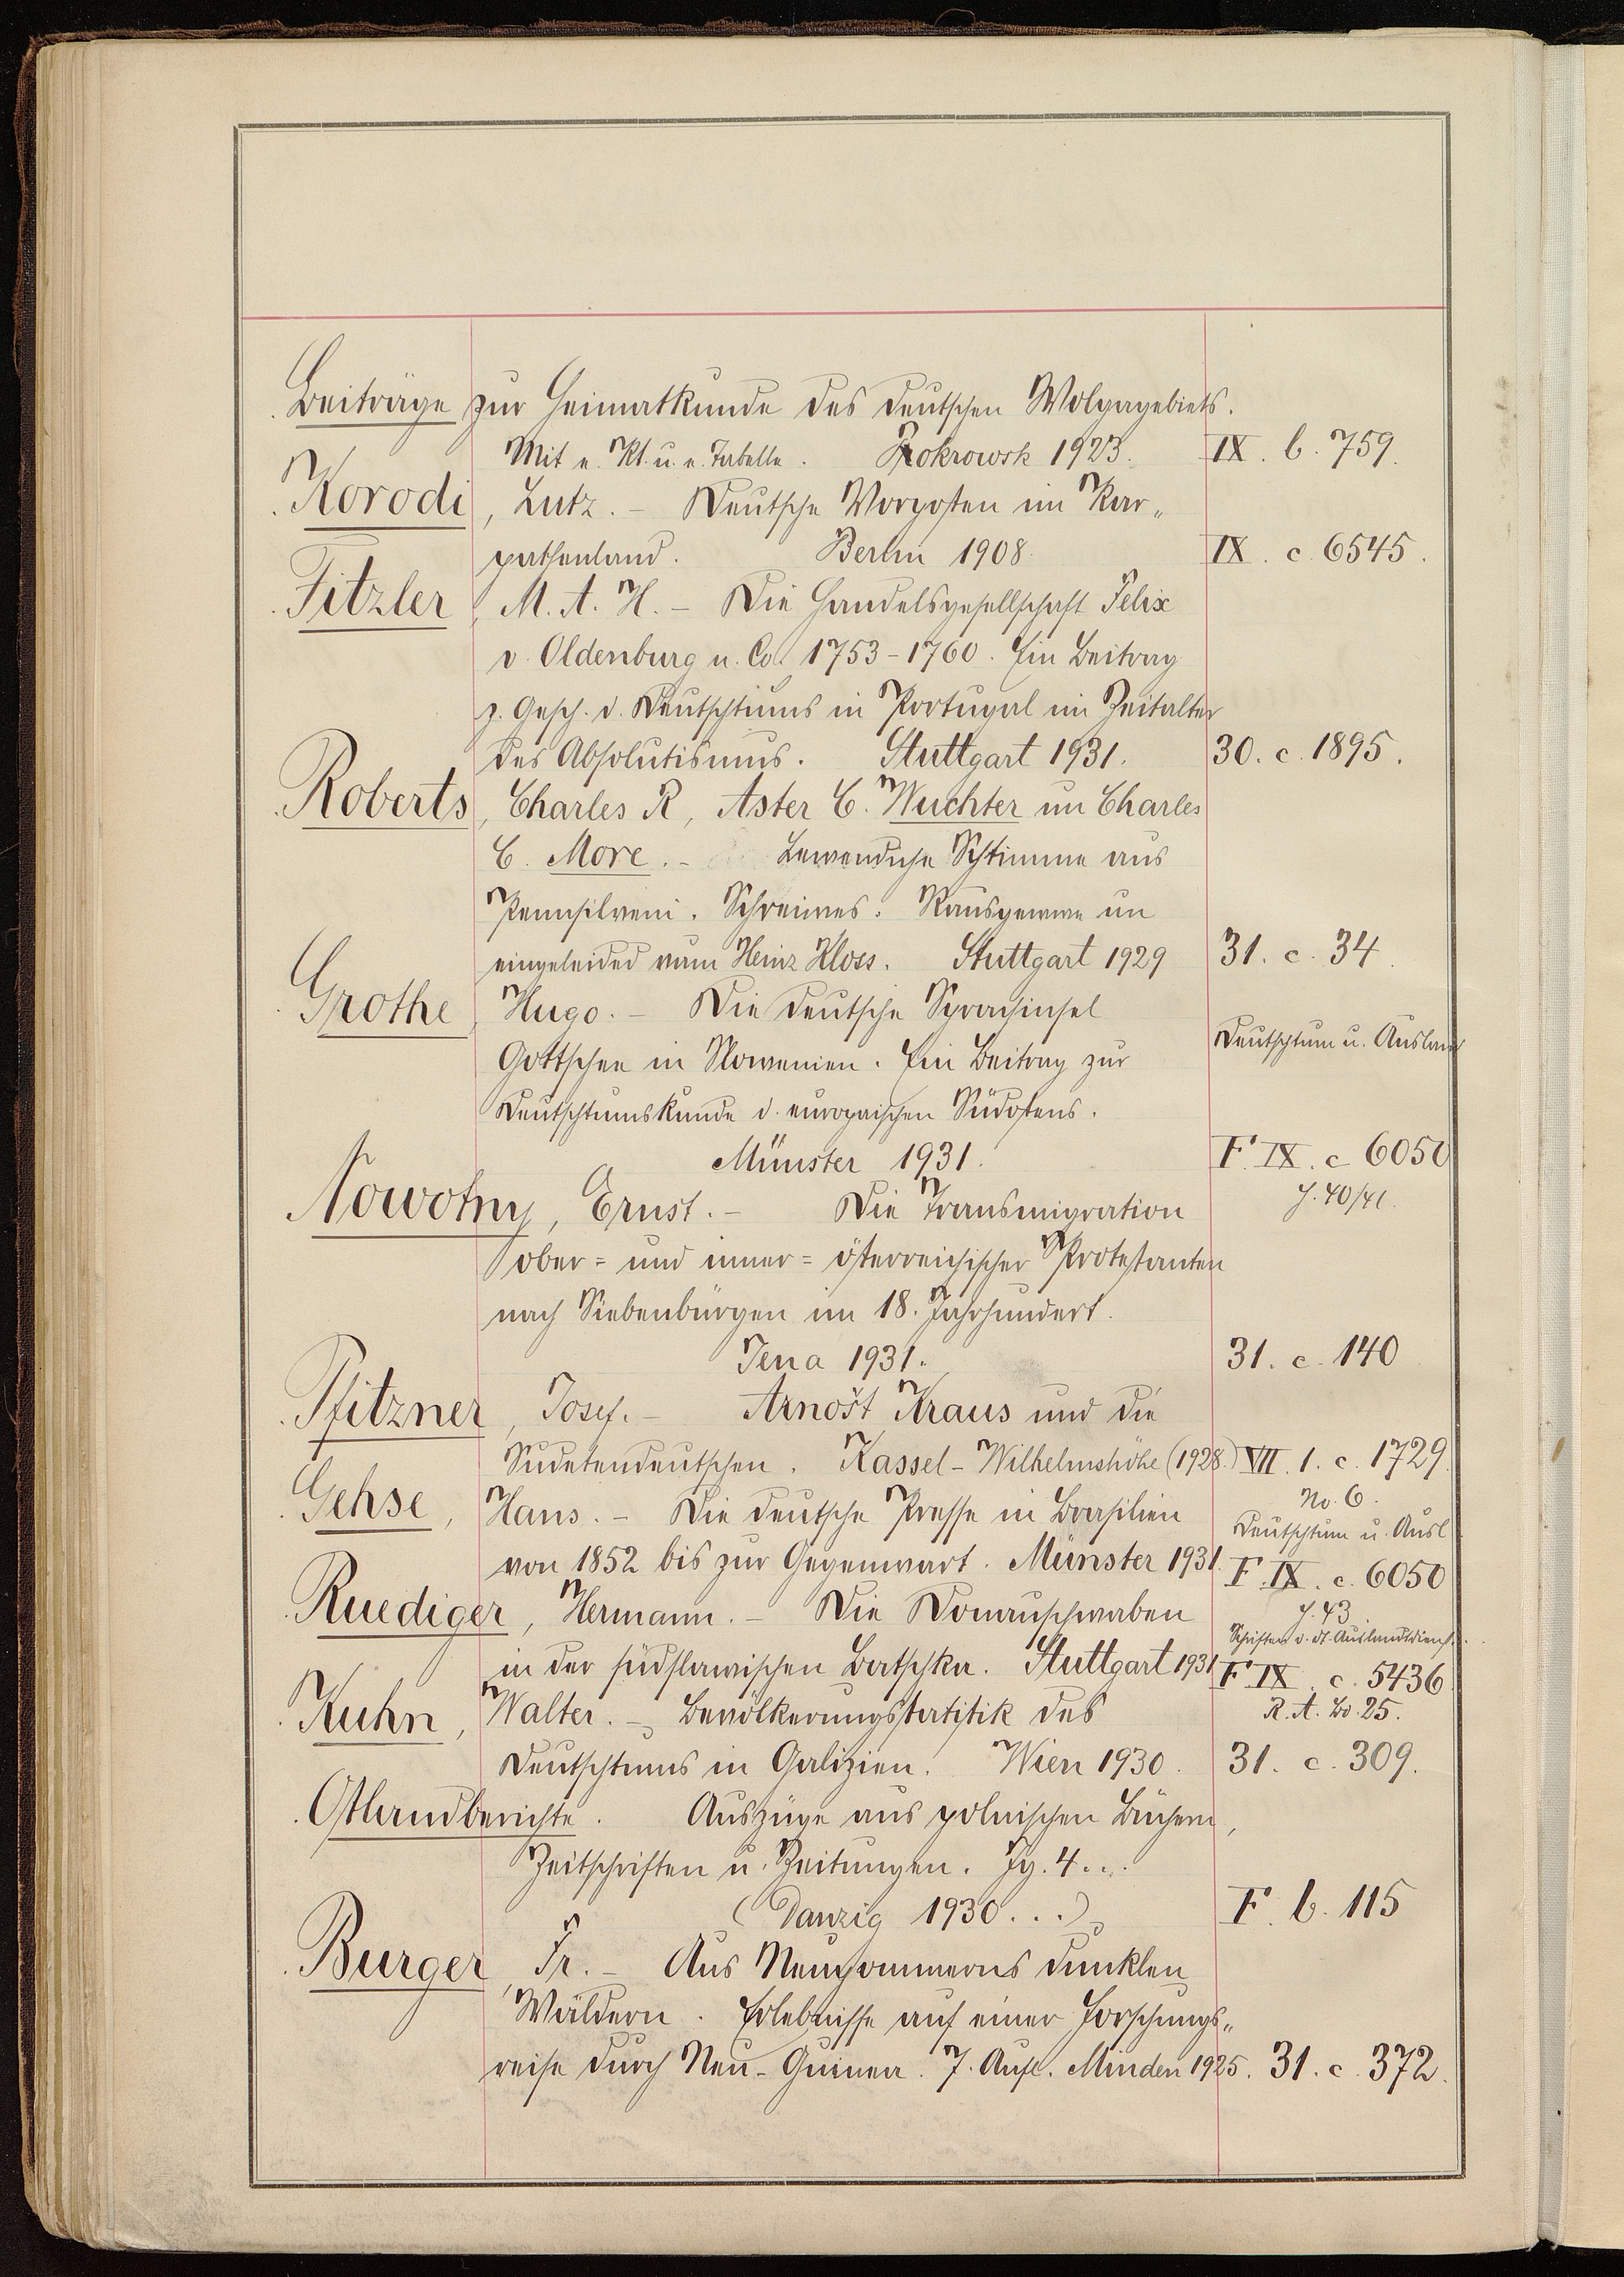 Beiträge zur Heimatkunde des deutschen Wolgagebiets.
Mit e. Kt. u. e. Tabelle. Pokrowsk 1923. IX. b. 759.
Korodi, Lutz. – Deutsche Vorposten im Kar„
pathenland. Berlin 1908. IX. c. 6545.
Fitzler, M. A. H. – Die Handelsgesellschaft Felix
v. Oldenburg u. Co. 1753-1760. Ein Beitrag
z. Gesch. d. Deutschtums in Portugal im Zeitalter
des Absolutismus. Stuttgart 1931. 30. c. 1895.
Roberts, Charles R, Aster C. Wuchter un Charles
C. More. – Lewendiche Schtimme aus
Pennsilveni. Schreiwes. Rausgewwe un
eingeleided vum Heinz Kloss. Stuttgart 1929 31. c. 34.
Grothe, Hugo. – Die deutsche Sprachinsel
Gottschee in Slowenien. Ein Beitrag zur Deutschtum u. Ausland
Deutschtumskunde d. europäischen Südostens.
Münster 1931. F. IX. c 6050
H. 40/41.
Nowotny, Ernst. – Die Transmigration
ober= und inner= österreichischer Protestanten
nach Siebenbürgen im 18. Jahrhundert.
Jena 1931. 31. c. 140
Pfitzner, Josef. – Arnošt Kraus und die
Sudetendeutschen. Kassel-Wilhelmshöhe (1928.) VII. 1. c. 1729.
No. 6.
Gehse, Hans. – Die deutsche Presse in Brasilien Deutschtum u. Ausl
von 1852 bis zur Gegenwart. Münster 1931. F. IX. c. 6050
H. 43
Ruediger, Hermann. – Die Donauschwaben Schriften d. dt. Auslandsdienst.
in der südslawischen Batschka. Stuttgart 1931 F IX. c. 5436
R. A. Bd. 25.
Kuhn, Walter. – Bevölkerungsstatistik des
Deutschtums in Galizien. Wien 1930. 31. c. 309.
Ostlandberichte. Auszüge aus polnischen Büchern,
Zeitschriften u. Zeitungen. Jg. 4...
(Danzig 1930...) F. b. 115
Burger, Fr. – Aus Neupommerns dunklen
Wäldern. Erlebnisse auf einer Forschungs„
reise durch Neu-Guinea. 7. Aufl. Minden 1925. 31. c. 372.